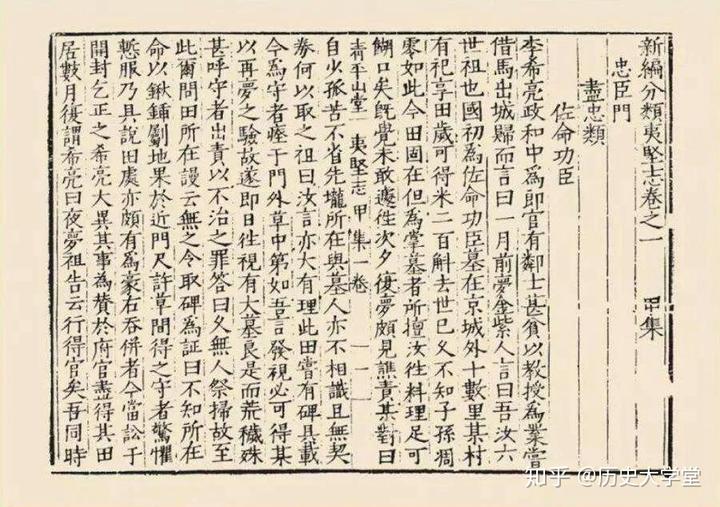 新編分類夷堅志卷之一 甲集
忠臣門
盡忠類
佐命功臣
李希亮政和中為郎官有鄰士甚貧以教授為業嘗
借馬出城歸而言曰一月前夢金紫人言曰吾汝六
世祖也國初為佐命功臣墓在京城外十數里某村
有祀享田歲可得米二百斛去世已久不知子孫凋
零如此今田固在但為掌墓者所擅汝徃料理足可
餬口矣既覺未敢遽徃次夕復夢頗見譙責某對曰
自少孤苦不省先壠所在與墓人亦不相識且無契
券何以取之祖曰汝言亦大有理此田嘗有碑具載
清平山堂 夷堅志 甲集一卷 一
今為守者瘞于門外草中第如吾言發視必可得某
以再夢之驗故遂即日徃視有大墓良是而荒穢殊
甚呼守者出責以不治之罪答曰久無人祭掃故至
此爾問田所在謾云無之令取碑為証曰不知所在
命以鍬鋪劚地果於近門尺許草間得之守者驚懼
慙服乃具說田處亦頗有為豪右吞併者今當訟于
開封乞正之希亮大異其事為贊於府官盡得其田
居數月復謂希亮曰夜夢祖告云行得官矣吾同時
知乎 @历史大学堂